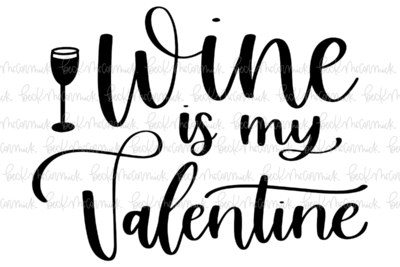 Wine
is my
Valentine